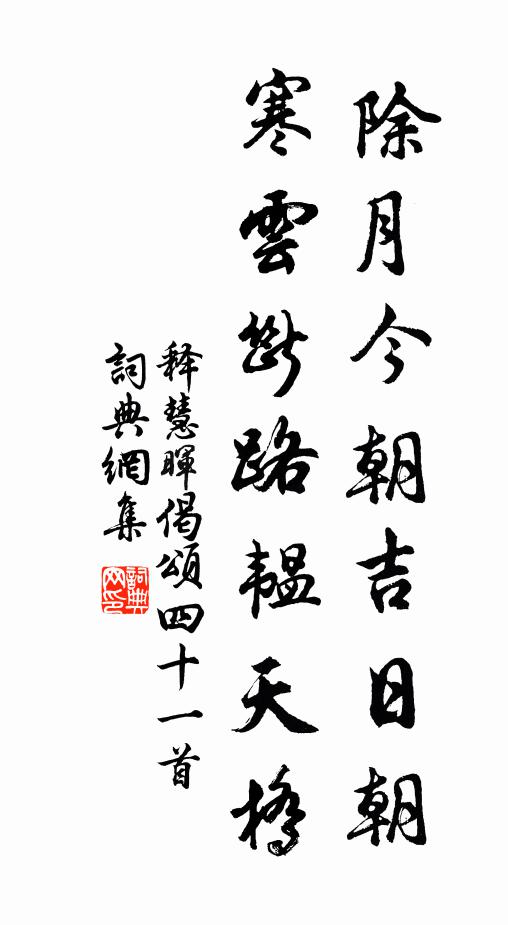 除月今朝吉日朝
寒雲斷路韞天橋
释慧暉偈頌四十一首
詞典網集
詞典
网印